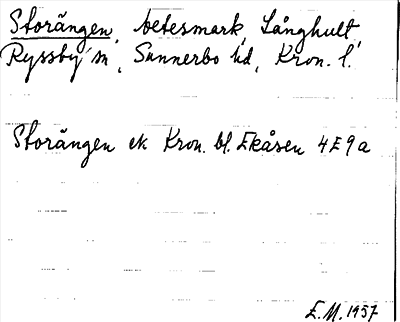 Storängen, betesmark, Långhult
Ryssby sn, Sunnerbo hd, Kron. l.
Storängen ek Kron. bl. Ekåsen 4E9a
E.M. 1957